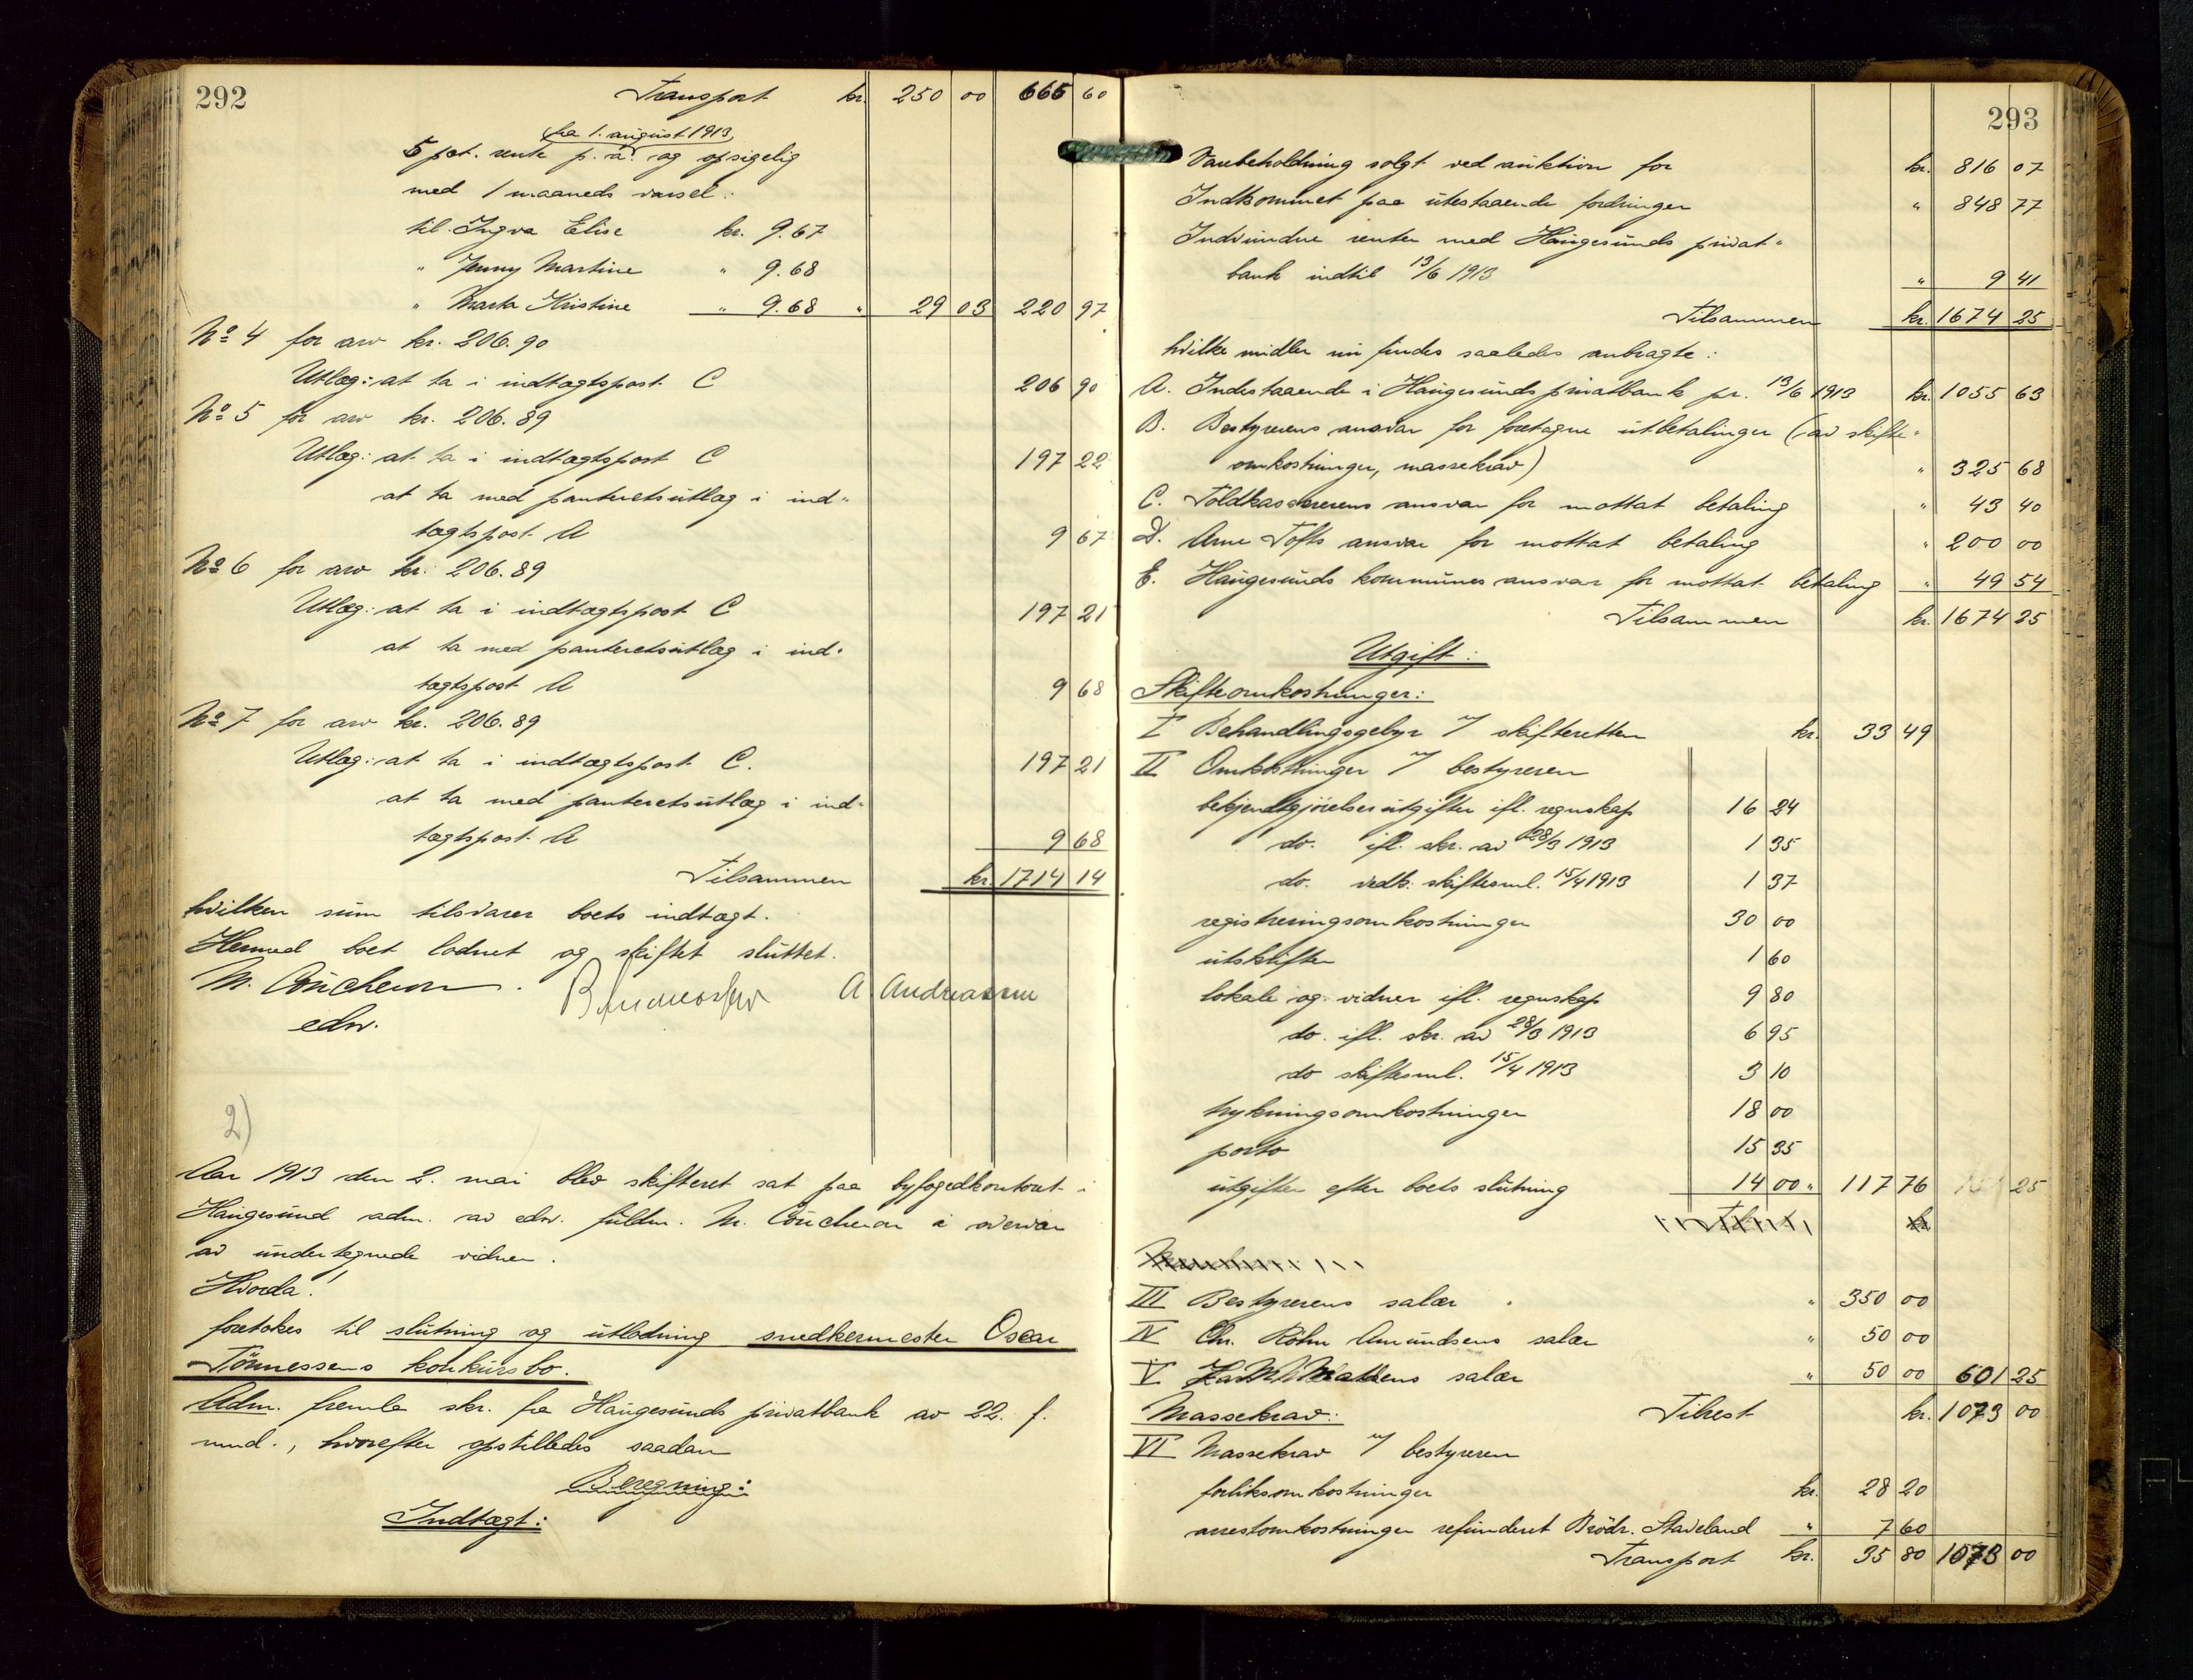 292
Transport kr. 250 00 666 60
fra 1. august 1913,
5 pct. rente p. a. og opsigelig
med 1 maaneds varsel:
til Ingva Elise kr. 9.67
" Jenny Martine " 9.68
" Marta Kristine " 9.68 " 29 03 220 97
No 4 for arv kr. 206.90
Utlæg: at ta i indtægtspost C 206 90
No 5 for arv kr. 206.89
Utlæg: at ta i indtægtspost C 197 22
at ta med panteretsutlæg i ind-
tægtspost A 9 67
No 6 for arv kr. 206.89
Utlæg: at ta i indtægtspost C 197 21
at ta med panteretsutlæg i ind-
tægtspost A 9 68
No 7 for arv kr. 206.89
Utlæg: at ta i indtægtspost C. 197 21
at ta med panteretsutlæg i ind-
tægtspost A 9 68
Tilsammen kr. 1714 14
hvilken sum tilsvarer boets indtægt.
Hermed boet lodnet og skiftet sluttet.
M. Coucheron. A Andreassen
edsv.
2)
Aar 1913 den 2. mai blev skifteret sat paa byfogedkontoret i
Haugesund adm. av edsv. fuldm. M. Coucheron i overvær
av undertegnede vidner.
Hvorda!
foretokes til slutning og utlodning snedkermester Oscar
Tönnessens konkursbo.
Adm. fremla skr. fra Haugesunds privatbank av 22. f.
mnd., hvorefter opstilledes saadan
Beregning:
Indtægt:
293
Varebeholdning solgt ved auktion for kr. 816 07
Indkommet paa utestaaende fordringer " 848 77
Indvundne renter med Haugesunds privat-
bank indtil 13/6 1913 " 9 41
Tilsammen kr. 1674 25
hvilke midler nu findes saaledes anbragte:
A. Indestaaende i Haugesunds privatbank pr. 13/6 1913 kr. 1055 63
B. Bestyrerens ansvar for foretagne utbetalinger (av skifte-
omkostninger, massekrav) " 325 68
C. Toldkassererens ansvar for mottat betaling " 43 40
D. Arne Tofts ansvar for mottat betaling " 200 00
E. Haugesunds kommunes ansvar for mottat betaling " 49 54
Tilsammen kr. 1674 25
Utgift:
Skifteomkostninger:
I Behandlingsgebyr t/ skifteretten kr. 33 49
II Omkostninger t/ bestyreren
bekjendtgjörelsesutgifter ifl. regnskap 16 24
do. ifl. skr. av 28/3 1913 1 35
do. vedk. skiftesml. 15/4 1913 1 37
registreringsomkostninger 30 00
utskrifter 1 60
lokale og vidner ifl. regnskap 9 80
do. ifl. skr. av 28/3 1913 6 95
do skiftesml. 15/4 1913 3 10
trykningsomkostninger 18 00
porto 15 35
utgifter efter boets slutning 14 00 " 117 76
III Bestyrerens salær " 350 00
IV Chr. Röhn Amundsens salær " 50 00
V salær " 50 00 601 25
Massekrav: Tilrest kr. 1073 00
VI Massekrav t/ bestyreren
forliksomkostninger kr. 28 20
arrestomkostninger refunderet Brödr. Stadeland " 7 60
Transport kr. 35 80 1073 00